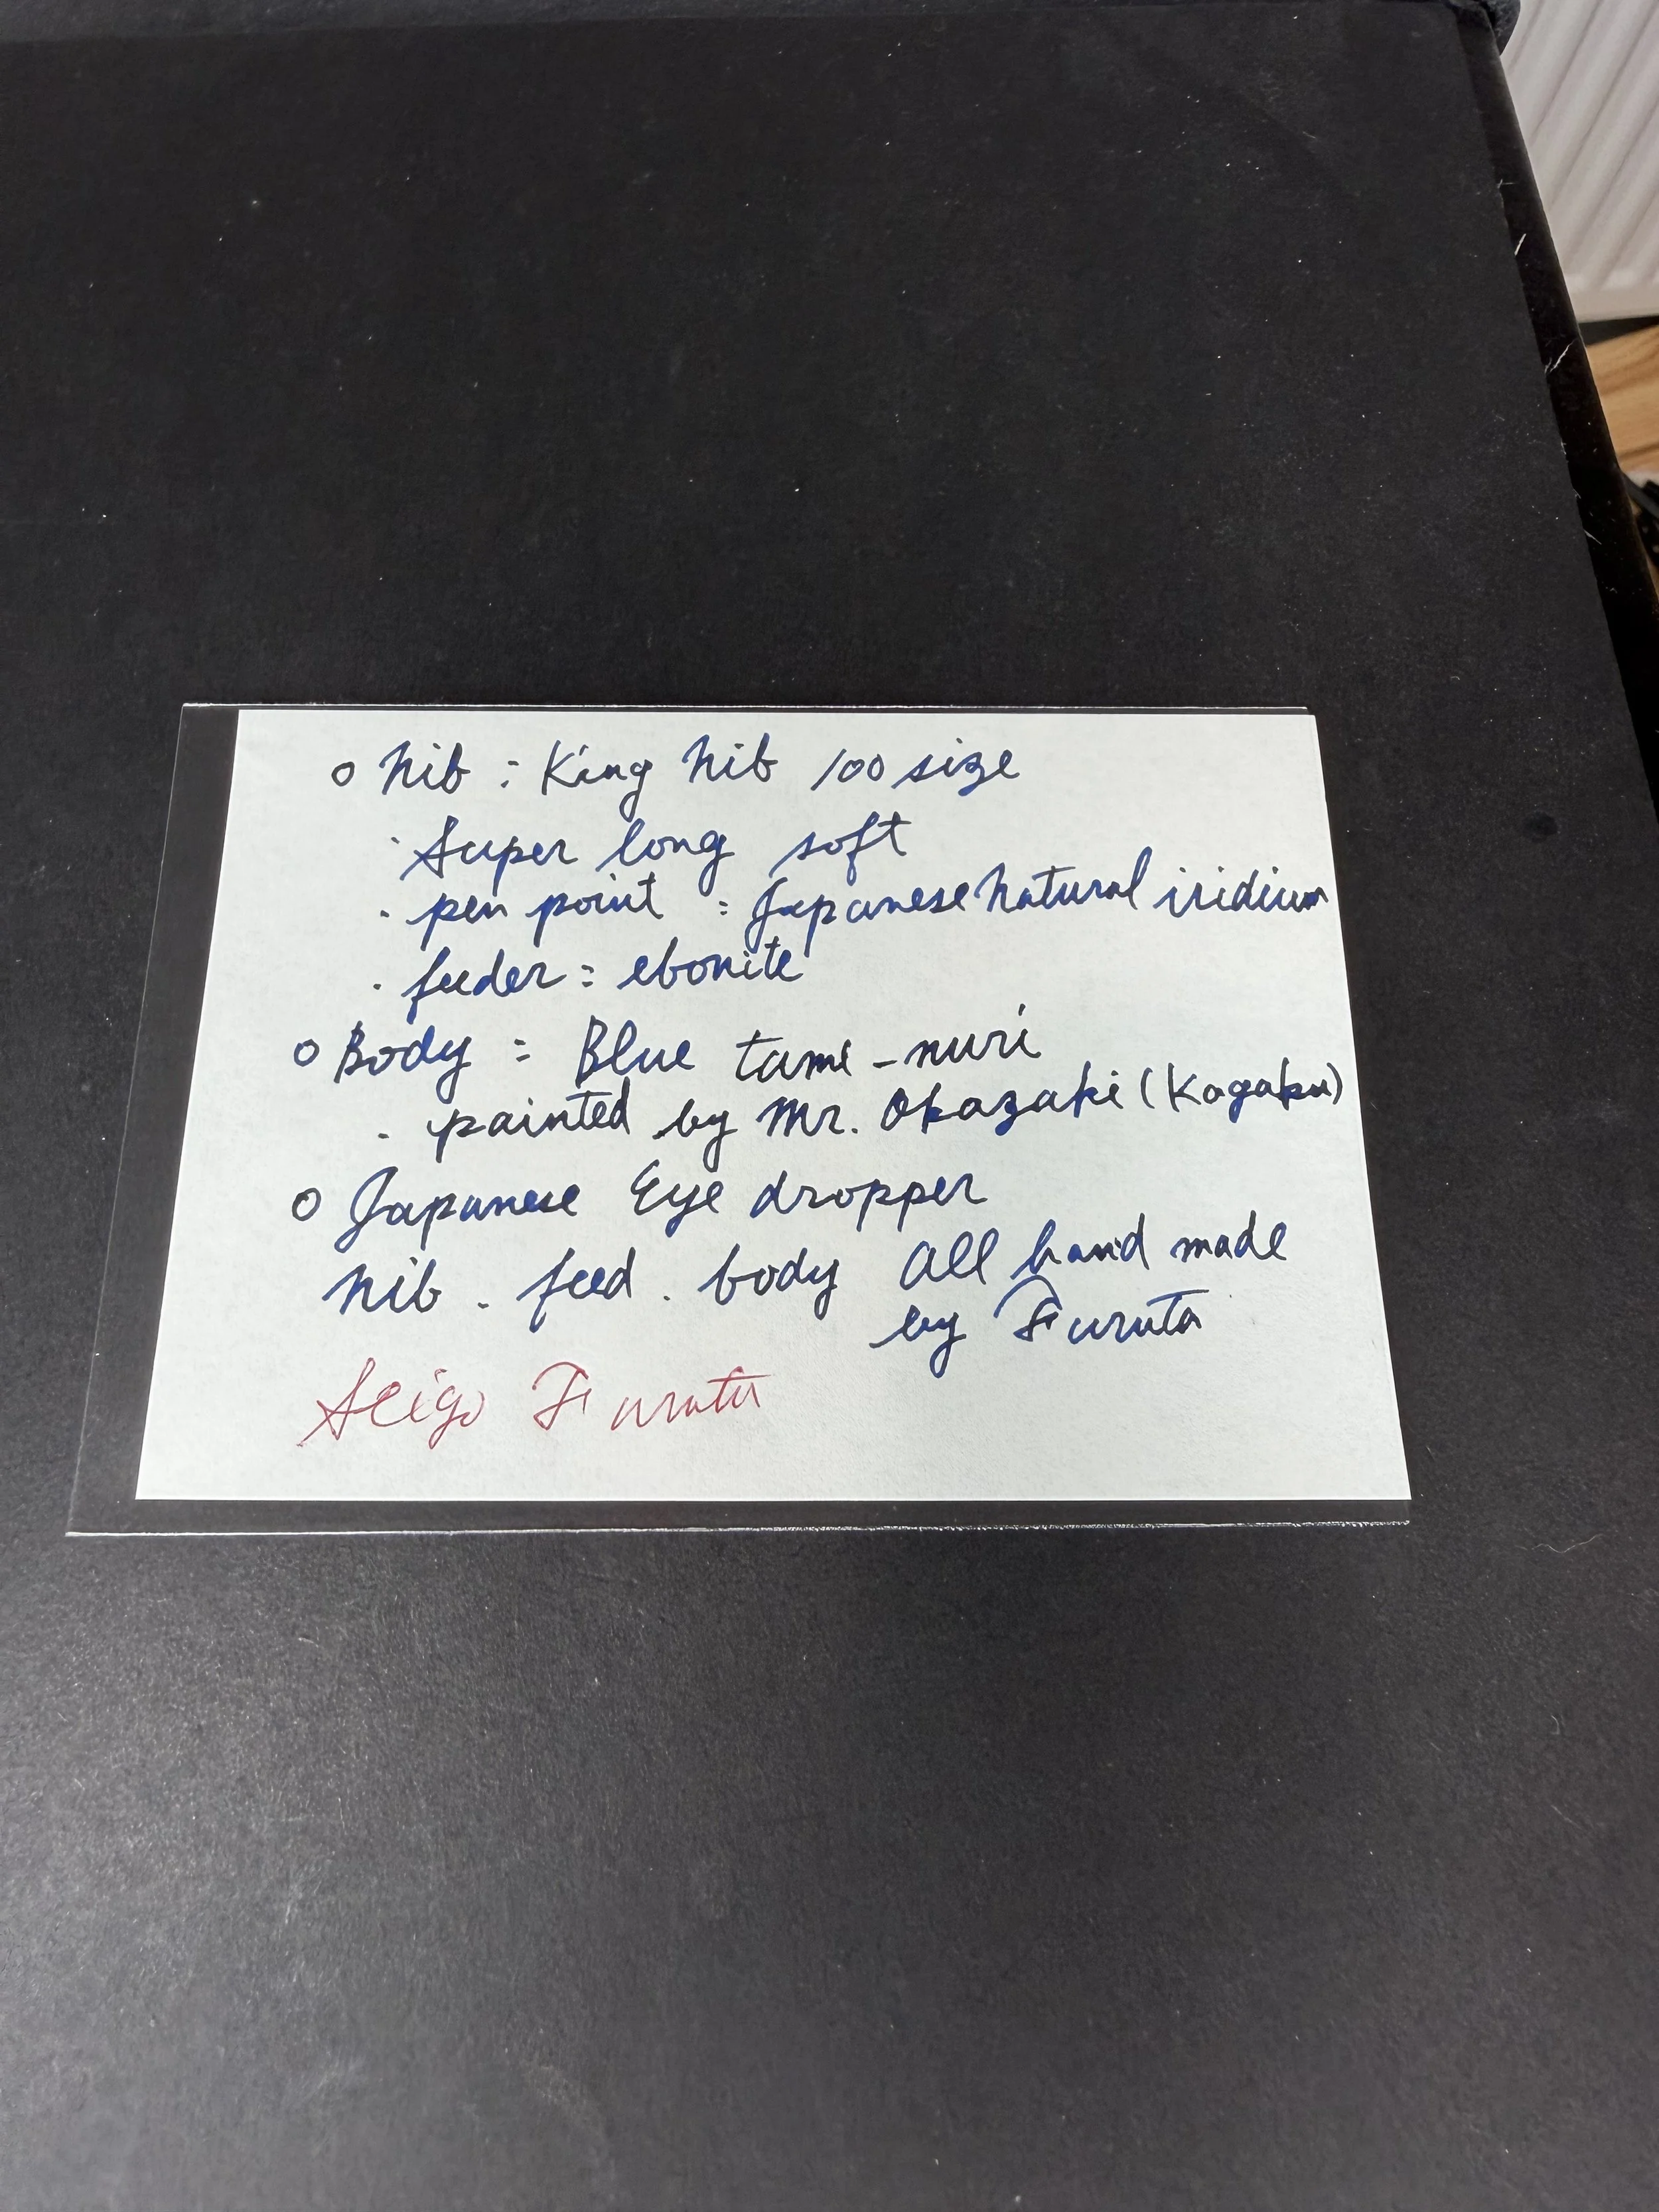 ○ Nib : King Nib 100 size
· Super long soft
· pen point : Japanese Natural iridium
· feeder = ebonite
○ Body = Blue tame-nuri
· painted by Mr. Okazaki (Kagaku)
○ Japanese Eye dropper
Nib . feed . body All hand made
by Furuta
Seigo Furuta